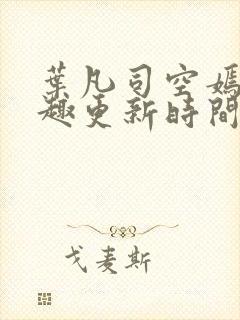 葉凡司空嫣
趣更新時間
戈麦斯